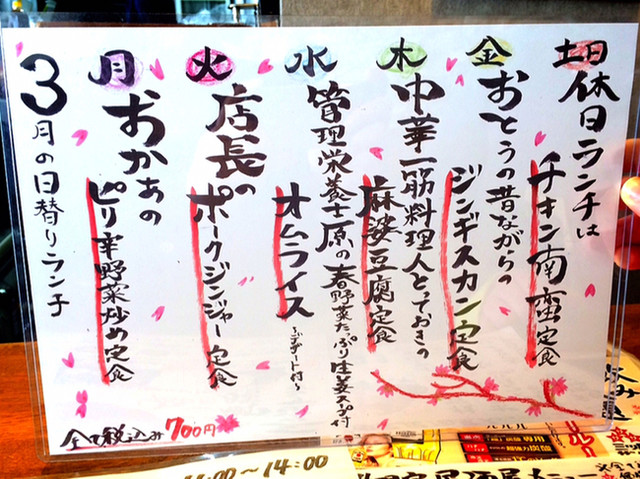 3月の日替りランチ
月
おかあの
ピリ辛野菜炒め定食
火
店長の
ポークジンジャー定食
水
管理栄養士原の春野菜たっぷり生姜スープ付
オムライス
〜デザート付〜
木
中華一筋料理人とっておきの
麻婆豆腐定食
金
おとうの昔ながらの
ジンギスカン定食
土日休日ランチは
チキン南蛮定食
全て税込み700円
:00〜14:00